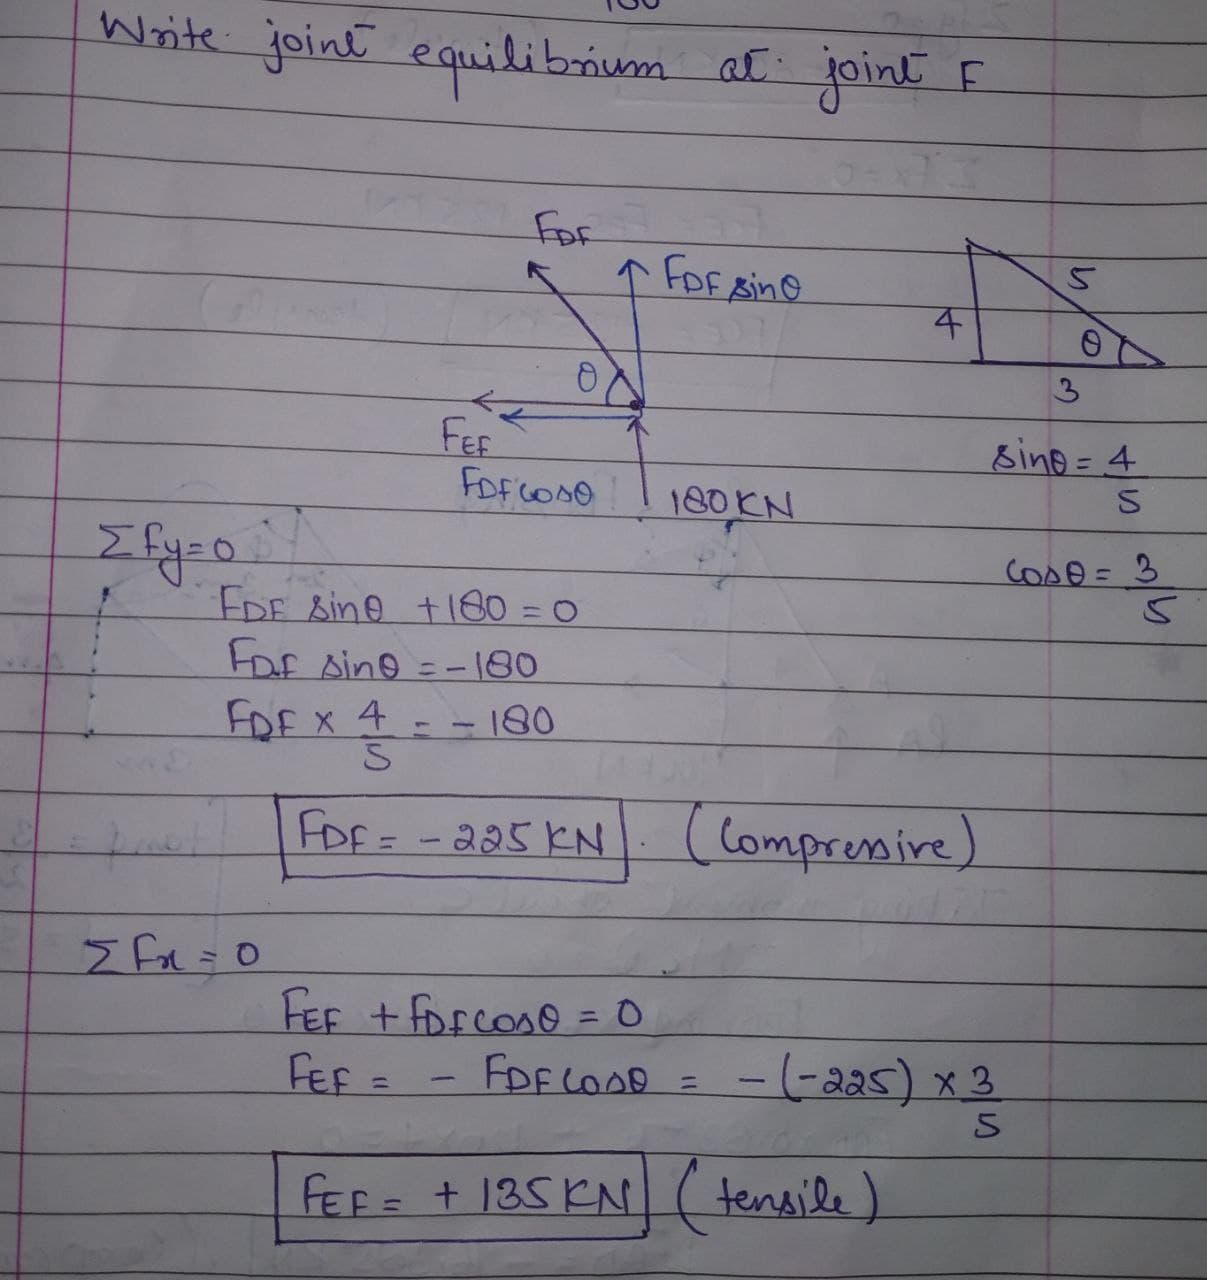 Write joint equilibrium at joint F
FDF
FDF sinθ
5
4
θ
θ
3
FEF
FDF cosθ
180KN
sinθ = 4/5
Σfy=0
cosθ = 3/5
FDF sinθ +180 = 0
FDF sinθ = -180
FDF x 4/5 = - 180
FDF = - 225 KN (Compressive)
Σfx = 0
FEF + FDF cosθ = 0
FEF = - FDF cosθ = - (-225) x 3/5
FEF = + 135 KN (tensile)